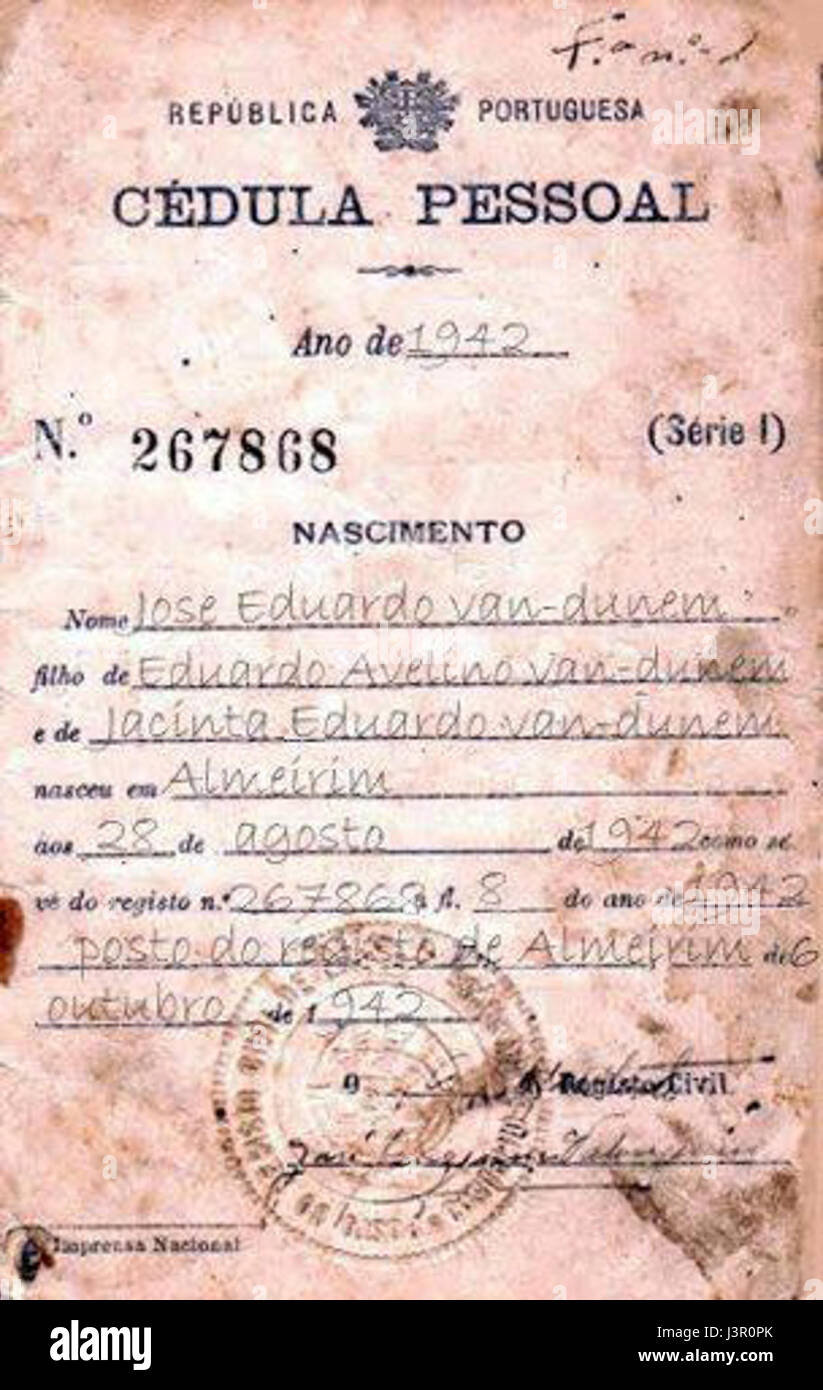 F.ª n.º 1
REPÚBLICA PORTUGUESA
CÉDULA PESSOAL
Ano de 1942
N.º 267868 (Série I)
NASCIMENTO
Nome Jose Eduardo van-dunem
filho de Eduardo Avelino van-dunem
e de Jacinta Eduardo van-dunem
nasceu em Almeirim
aos 28 de agosto de 1942 como se
vê do registo n.º 267868 a fl. 8 do ano de 1942
posto do registo de Almeirim de 6
outubro de 1942
O Registo Civil
José
Imprensa Nacional
alamy
alamy stock photo
J3R0PK
www.alamy.com